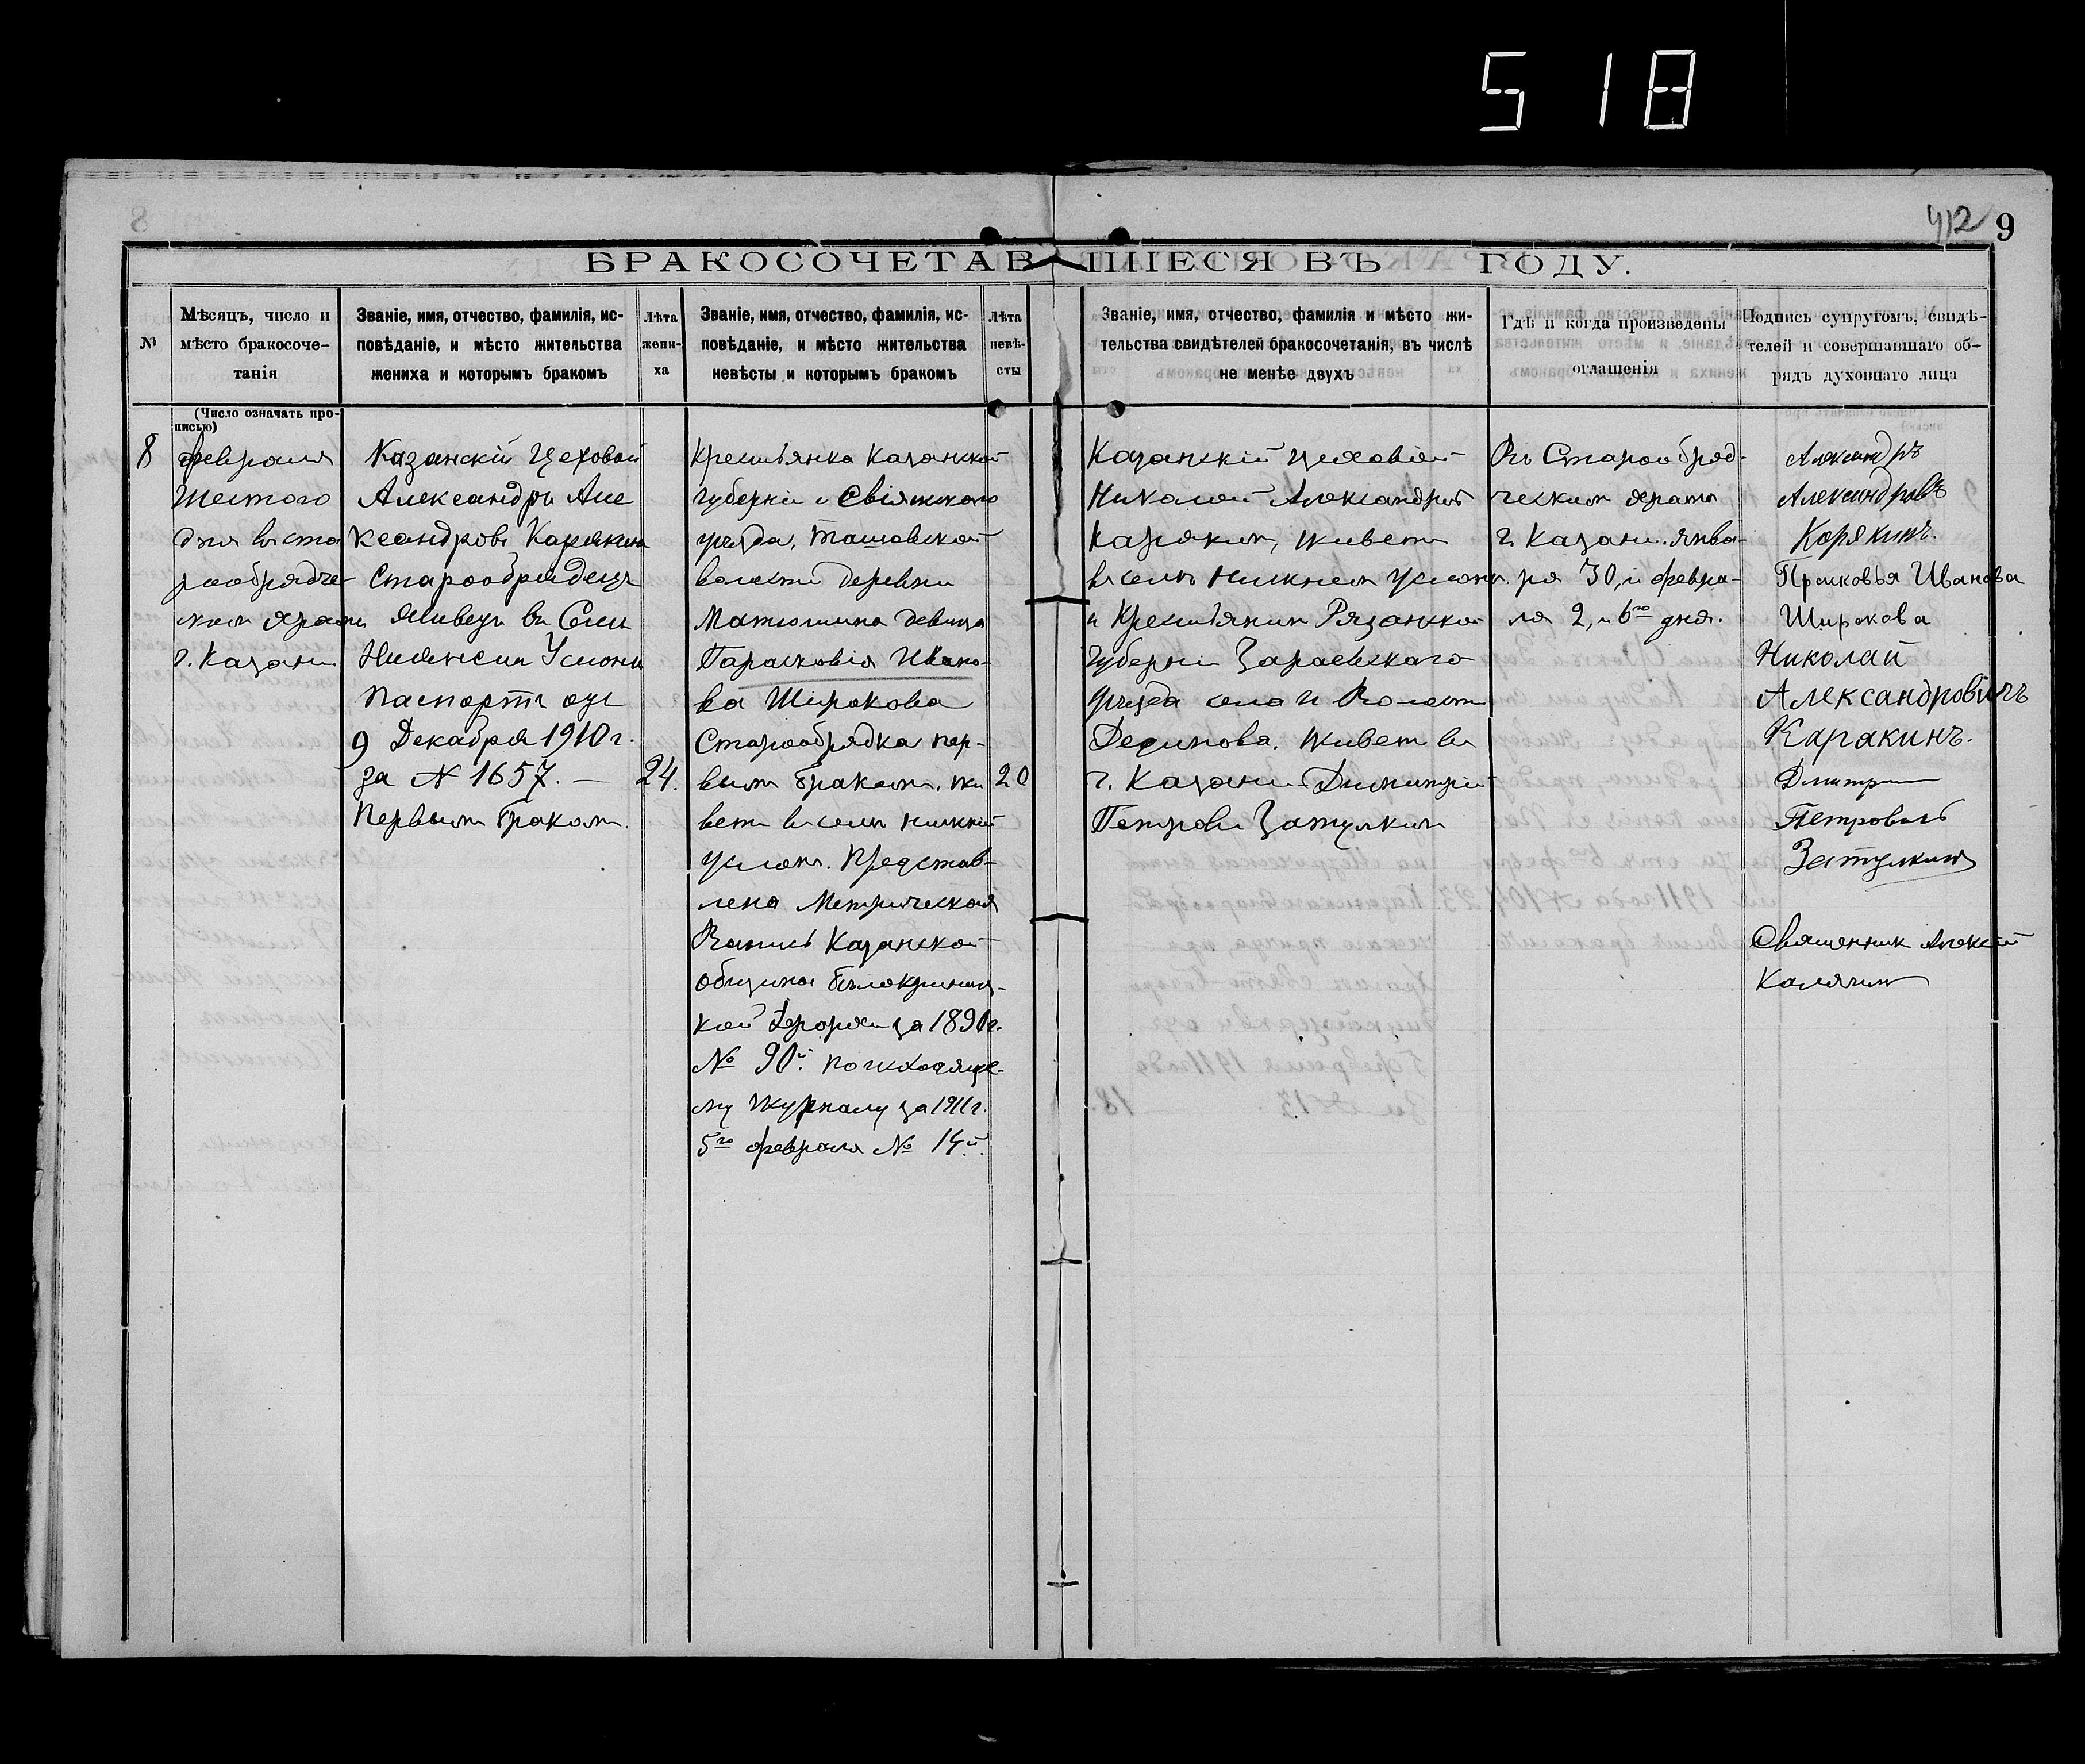 518
412 9
БРАКОСОЧЕТАВШІЕСЯ ВЪ ГОДУ.
№
Мѣсяцъ, число и
мѣсто бракосоче-
танія
Званіе, имя, отчество, фамилія, ис-
повѣданіе, и мѣсто жительства
жениха и которымъ бракомъ
Лѣта
жени-
ха
Званіе, имя, отчество, фамилія, ис-
повѣданіе, и мѣсто жительства
невѣсты и которымъ бракомъ
Лѣта
невѣ-
сты
Званіе, имя, отчество, фамилія и мѣсто жи-
тельства свидѣтелей бракосочетанія, въ числѣ
не менѣе двухъ
Гдѣ и когда произведены
оглашенія
Подпись супругомъ, свидѣ-
телей и совершавшаго об-
рядъ духовнаго лица
(Число означать про-
писью)
8
Февраля
Шестого
дня въ ста
рообрядче-
ском храми
г. Казани
Казанскій Цеховой
Александръ Але
ксандровъ Карякинъ
Старообрядецъ
Живецъ въ Сели
Нижнемъ Услони
Паспортъ отъ
9 Декабря 1910 г.
за № 1657. —
Первымъ бракомъ.
24.
Крестьянка Казанской
Губерніи Свіяжскаго
уѣзда, Ташовской
волости деревни
Матюшина девица
Парасковія Ивано-
ва Широкова
Старообрядка пер-
вымъ бракомъ. жи
ветъ въ селѣ нижній
услонъ. Представ-
лена Метрическая
Запись Казанской
общины Бѣлокриниц-
кой Іерархіи за 1890 г.
№ 90й. По исходяще-
му журналу за 1911 г.
5го февраля № 14й.
20
Казанскій цеховой
Николай Александровъ
Карякинъ, живетъ
въ селѣ Нижнемъ Услонѣ.
и Крестьянинъ Рязанской
Губерніи Зарайскаго
Уѣзда села и Волости
Дединова. Живетъ въ
г. Казани Димитрій
Петровъ Затулкинъ
Въ Старообряд-
ческомъ храмѣ
г. Казани. янва-
ря 30, и февра-
ля 2, и 6го дня.
Александръ
Александровъ
Корякинъ.
Прасковья Иванова
Широкова
Николай
Александровичъ
Карякинъ.
Дмитри
Петровъ
Затулкинъ
Священник Алексій
Калягинъ